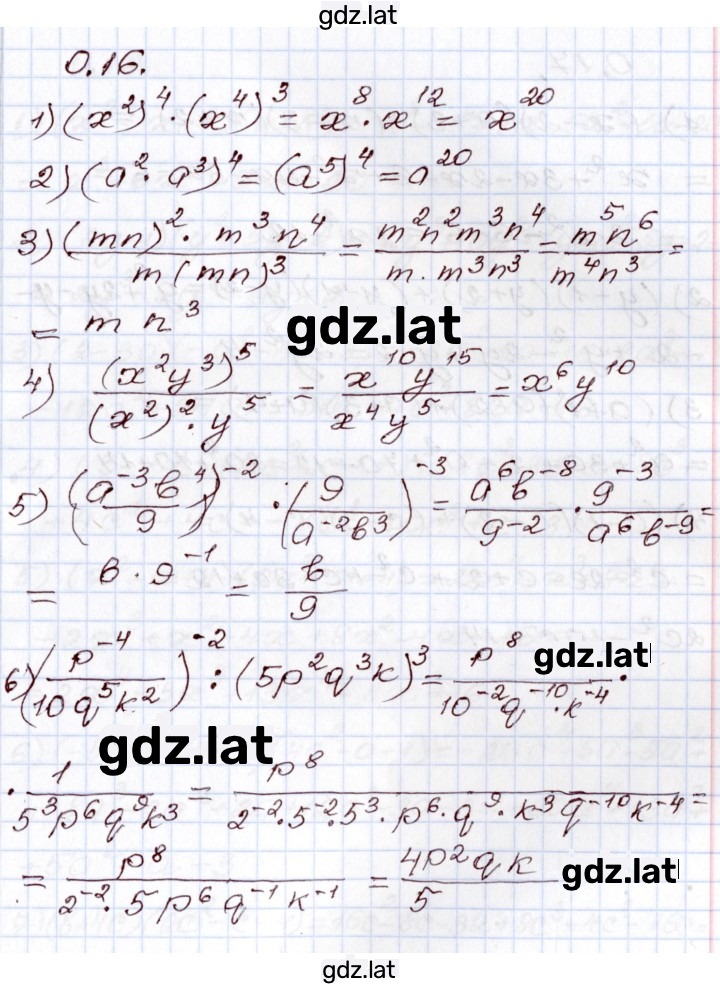 gdz.lat
0.16.
1) (x²)⁴ · (x⁴)³ = x⁸ · x¹² = x²⁰
2) (a² · a³)⁴ = (a⁵)⁴ = a²⁰
3) (mn)² · m³ · n⁴ / m(mn)³ = m²n²m³n⁴ / m · m³n³ = m⁵n⁶ / m⁴n³ =
= m n³
gdz.lat
4) (x²y³)⁵ / (x²)² · y⁵ = x¹⁰y¹⁵ / x⁴y⁵ = x⁶y¹⁰
5) (a⁻³b⁴ / 9)⁻² · (9 / a⁻²b³)⁻³ = a⁶b⁻⁸ / 9⁻² · 9⁻³ / a⁶b⁻⁹ =
= b · 9⁻¹ = b / 9
6) (p⁻⁴ / 10q⁵k²)⁻² : (5p²q³k)³ = p⁸ / 10⁻²q⁻¹⁰ · k⁻⁴ ·
gdz.lat
gdz.lat
· 1 / 5³p⁶q⁹k³ = p⁸ / 2⁻² · 5⁻² · 5³ · p⁶ · q⁹ · k³ q⁻¹⁰k⁻⁴ =
= p⁸ / 2⁻² · 5p⁶q⁻¹k⁻¹ = 4p²qk / 5
gdz.lat
gdz.lat